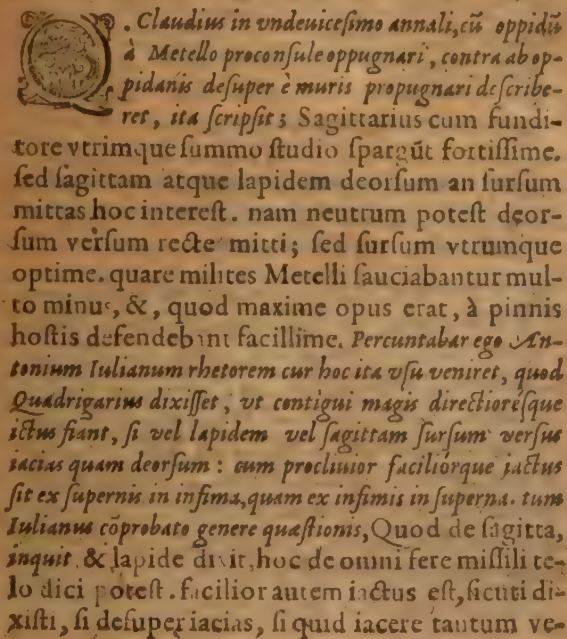 Q. Claudius in vndeuicesimo annali, cū oppidū
à Metello proconsule oppugnari, contra ab op-
pidanis desuper è muris propugnari describe-
ret, ita scripsit; Sagittarius cum fundi-
tore vtrimque summo studio spargūt fortissime.
sed sagittam atque lapidem deorsum an sursum
mittas hoc interest. nam neutrum potest deor-
sum versum recte mitti; sed sursum vtrumque
optime. quare milites Metelli sauciabantur mul-
to minus, &, quod maxime opus erat, à pinnis
hostis defendebant facillime. Percuntabar ego An-
tonium Iulianum rhetorem cur hoc ita vsu veniret, quod
Quadrigarius dixisset, vt contigui magis directioresque
ictus fiant, si vel lapidem vel sagittam sursum versus
iacias quam deorsum: cum procliuior faciliórque jactus
sit ex supernis in infima, quam ex infimis in superna. tum
Iulianus cōprobato genere quæstionis, Quod de sagitta,
inquit, & lapide dixit, hoc de omni fere missili te-
lo dici potest. facilior autem iactus est, sicuti di-
xisti, si desuper iacias, si quid iacere tantum ve-